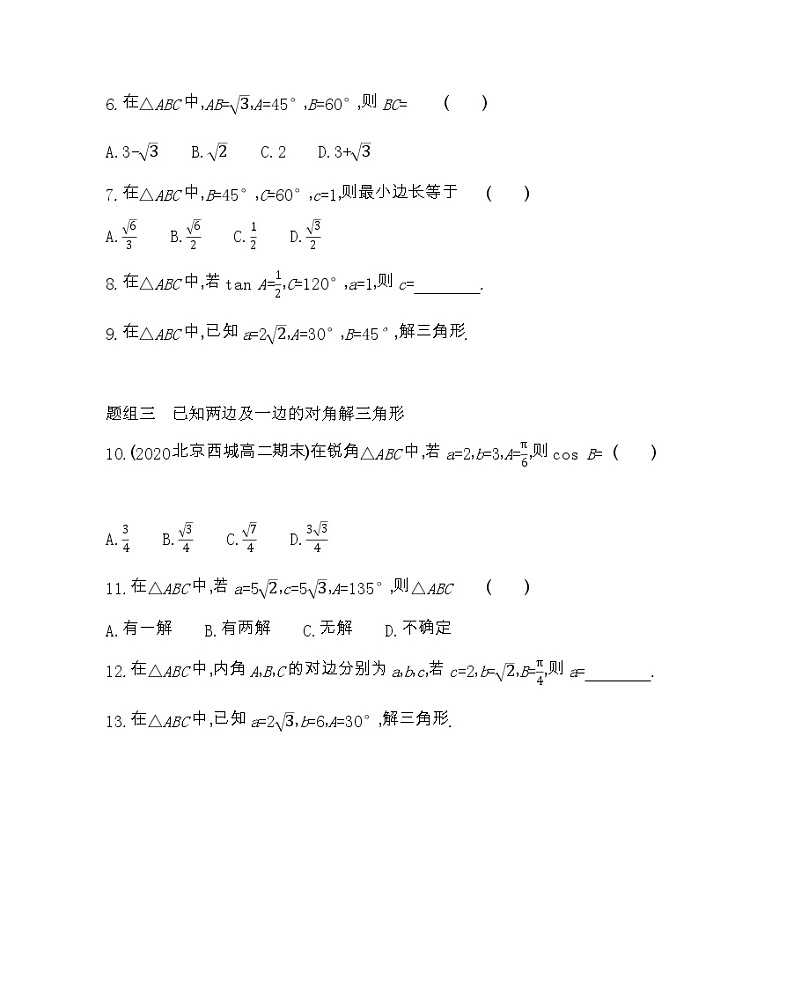 6.在△ABC中,AB=√3,A=45°,B=60°,则BC= (  )
A.3-√3 B.√2 C.2 D.3+√3
7.在△ABC中,B=45°,C=60°,c=1,则最小边长等于 (  )
A.√6/3 B.√6/2 C.1/2 D.√3/2
8.在△ABC中,若tan A=1/2,C=120°,a=1,则c=________.
9.在△ABC中,已知a=2√2,A=30°,B=45°,解三角形.
题组三 已知两边及一边的对角解三角形
10.(2020北京西城高二期末)在锐角△ABC中,若a=2,b=3,A=π/6,则cos B= (  )
A.3/4 B.√3/4 C.√7/4 D.3√3/4
11.在△ABC中,若a=5√2,c=5√3,A=135°,则△ABC (  )
A.有一解 B.有两解 C.无解 D.不确定
12.在△ABC中,内角A,B,C的对边分别为a,b,c,若c=2,b=√2,B=π/4,则a=________.
13.在△ABC中,已知a=2√3,b=6,A=30°,解三角形.